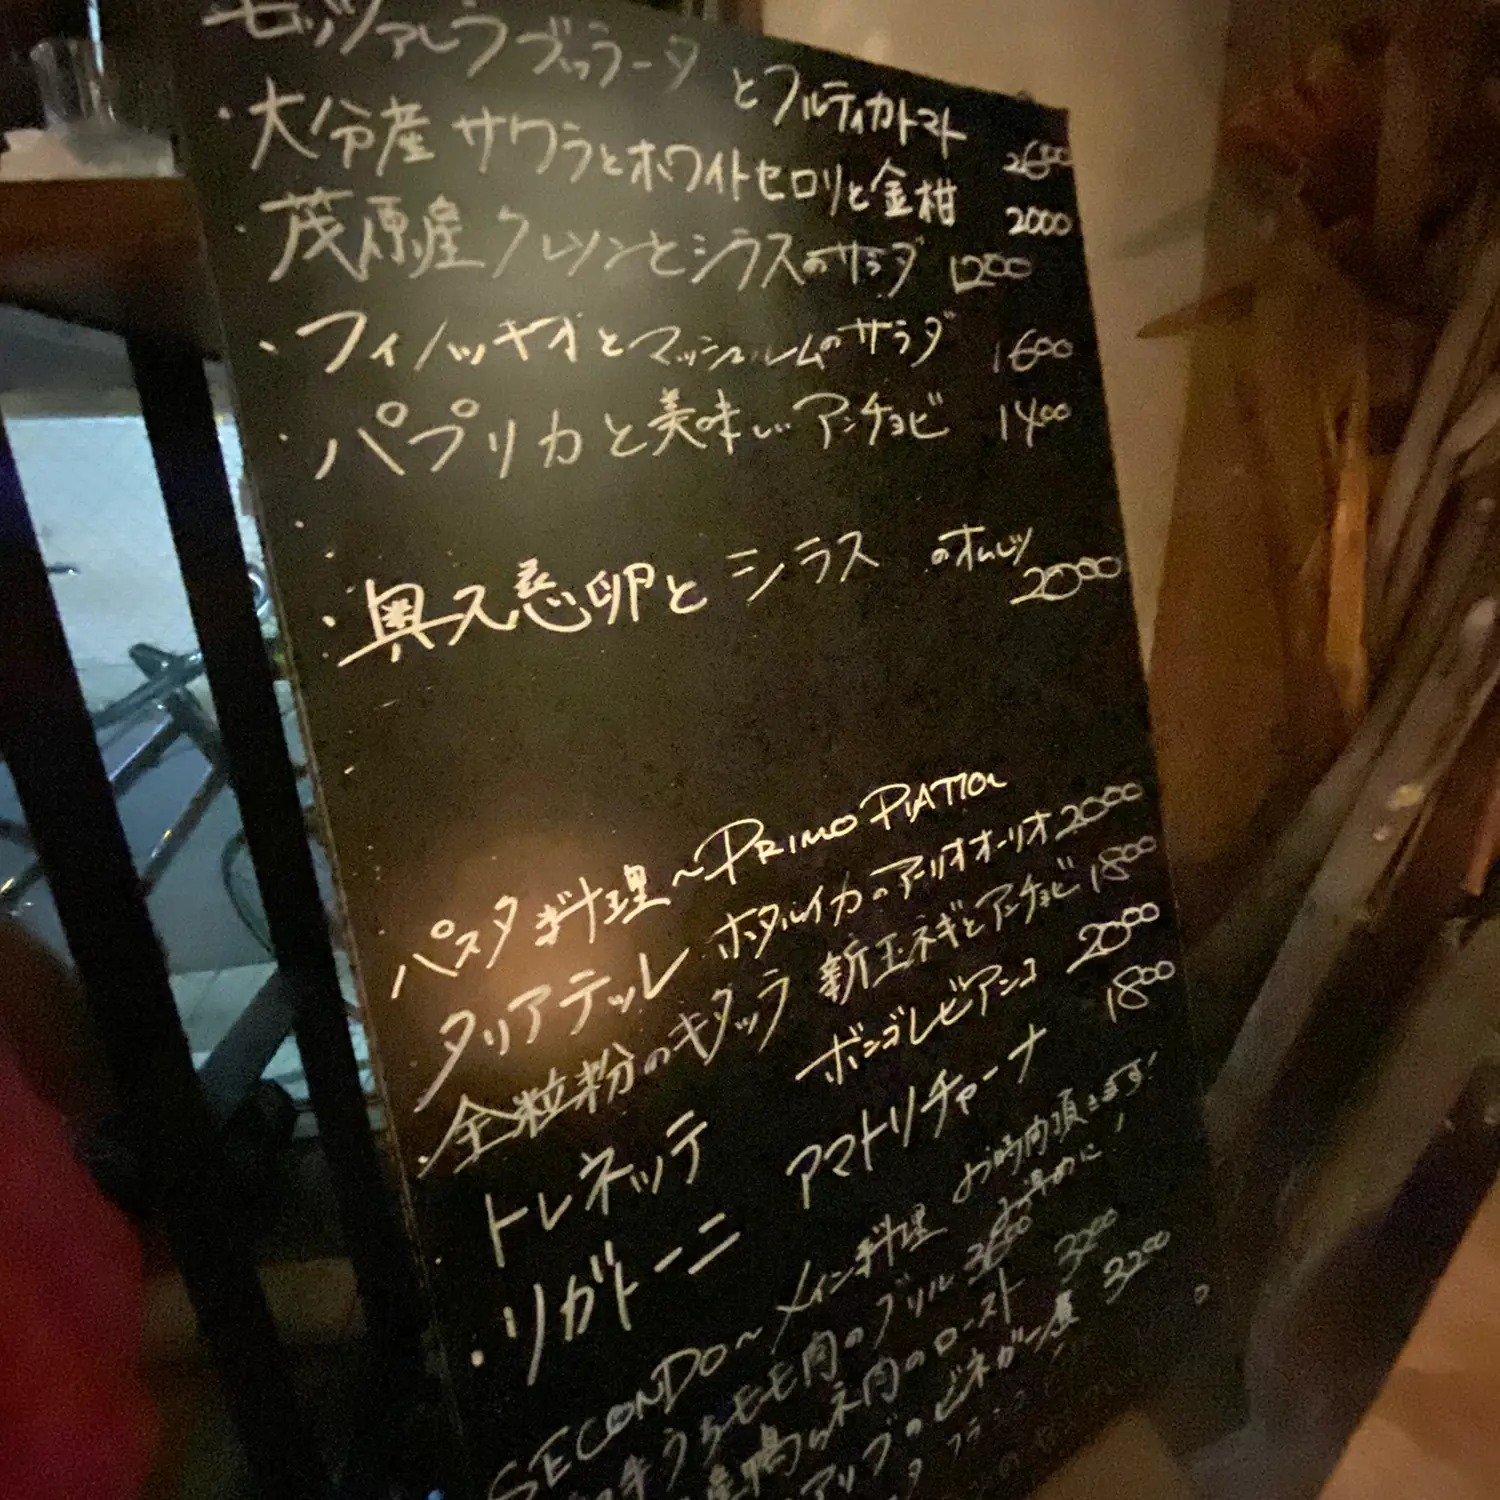 モッツァレラブッラータとフルティカトマト 2600
・大分産サワラとホワイトセロリと金柑 2000
・茂原産クレソンとシラスのサラダ 1200
・フィノッキオとマッシュルームのサラダ 1600
・パプリカと美味しいアンチョビ 1400
・奥久慈卵とシラスのオムレツ 2000
パスタ料理〜PRIMO PIATTO〜
タリアテッレ ホタルイカのアーリオオーリオ 2000
・全粒粉のキタッラ 新玉ネギとアンチョビ 1800
・トレネッテ ボンゴレビアンコ 2000
・リガトーニ アマトリチャーナ 1800
SECONDO〜メイン料理
うちもも肉のグリル 3600
肉のロースト 3200
のビネガー 3200